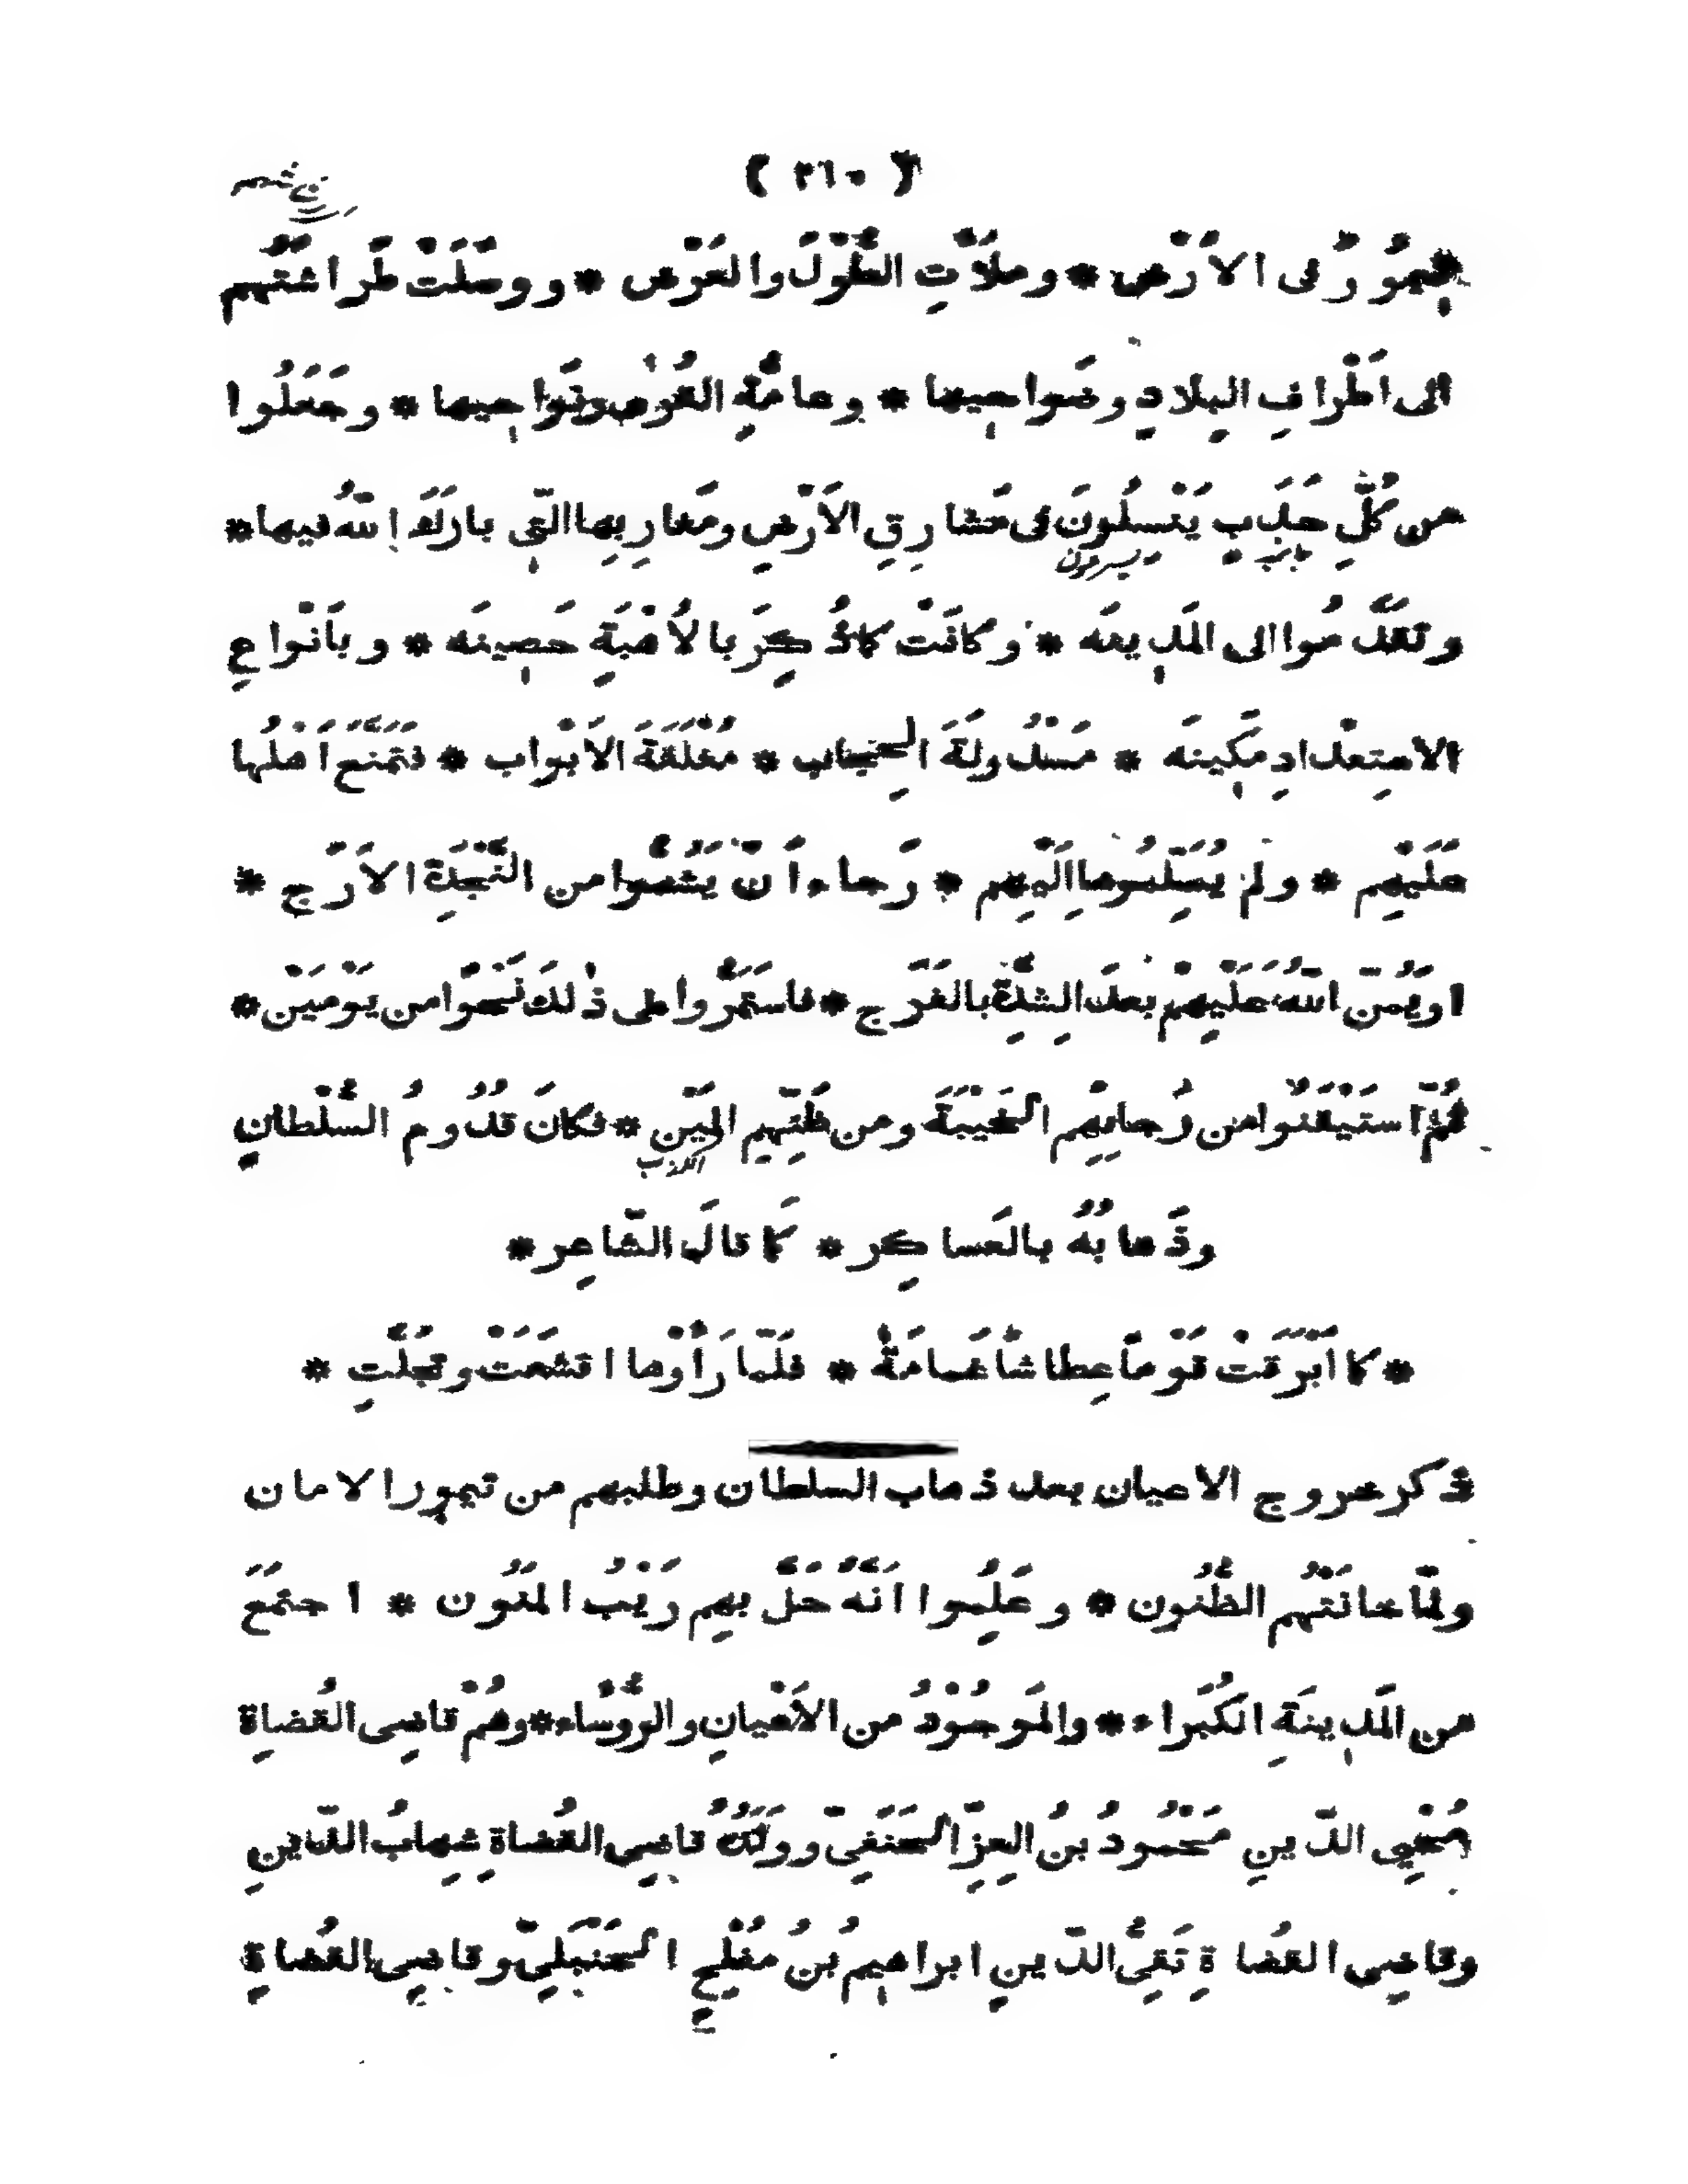 ( ٢٦٠ )
تيمُورُ فى الاَرْضِ * وملأتِ الطُّوْلَ والعَرْضَ * ووصَلَتْ طَراشتُهم
الى اَطْرافِ البِلادِ وضَواحيها * وعامّةِ القُرٰى ونَواحيها * وجَعَلُوا
من كُلِّ حَدَبٍ يَنْسِلُونَ فى مَشارِقِ الاَرْضِ ومَغارِبِها الَّتِى بارَكَ اللهُ فيها *
وتقدَّمُوا الى المَدِينَه * وكانَتْ كما ذُكِرَ بالاُهْبَةِ حَصِينَه * وباَنْواعِ
الاستِعْدادِ مَكِينَه * مَسْدُولَةَ الحِجاب * مُغْلَقَةَ الاَبْواب * فَتَمَنَّعَ اَهْلُها
عَلَيْهِم * ولم يُسَلِّمُوها اِلَيْهِم * رَجاءَ اَنْ يَشَمُّوا من النَّجْدَةِ الاَرَج *
اويَمُنَّ اللهُ عَلَيهِمْ بعدَ الشِدَّةِ بالفَرَج * فاستَمَرُّوا على ذٰلكَ نَحْوًا من يَوْمَيْن *
ثُمَّ استَيْقَنُوا من رَجائِهِم الخَيْبَةَ ومن ظَنِّهِم المَيْن * فكانَ قدُومُ السُّلْطانِ
الكذب
وذَهابُهُ بالعَساكِر * كَما قالَ الشّاعِر *
* كما اَبْرَقتْ قَوْمًا عِطاشًا غَمامَةٌ * فلَمّا رَأوْها اقشَعَتْ وتجلَّتِ *
ذكر خروج الاعيان بعد ذهاب السلطان وطلبهم من تيمور الامان
ولمّا خانَتْهُم الظُّنُون * وعَلِمُوا اَنَّهُ حَلَّ بهِم رَيْبُ المَنُون * اجتمَعَ
من المَدِينَةِ الكُبَراء * والمَوجُوْدُ من الاَعْيانِ والرُّؤساء * وهُمْ قاضِى القُضاة
مُحْيِى الدّينِ مَحْمُودُ بنُ العِزِّ الحَنَفِىّ وولَدُهُ قاضِى القُضاةِ شِهابُ الدّينِ
وقاضِى القُضاةِ تَقِىُّ الدّينِ ابراهيمُ بنُ مُفْلِحٍ الحَنْبَلِىّ وقاضِى القُضاةِ